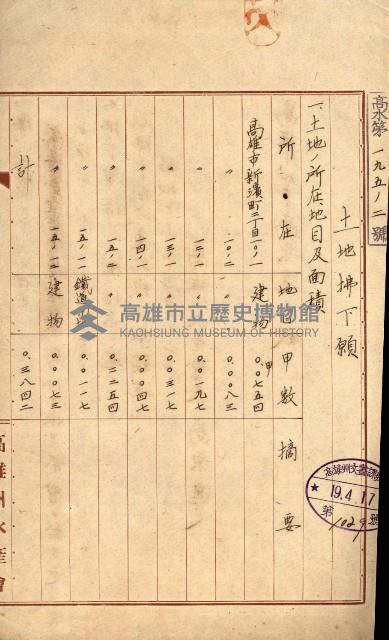 高水第一九五ノ二號
土地拂下願
一、土地ノ所在地目及面積
所在 地目 甲數 摘要
高雄市新濱町二丁目一〇ノ一 建物 〇.〇七五四甲
〃 一〇ノ二 〃 〇.〇〇八三
〃 一二ノ一 〃 〇.〇一九七
〃 一三ノ一 〃 〇.〇三一七
〃 一四ノ一 〃 〇.〇〇四七
〃 一五ノ二 〃 〇.二二五四
〃 一五ノ一一 鐵道 〇.〇一一七
〃 一五ノ一二 建物 〇.〇〇七三
計 〇.三八四二
高雄州水產會
高雄州
19.4.17
第1029號
高雄市立歷史博物館
KAOHSIUNG MUSEUM OF HISTORY